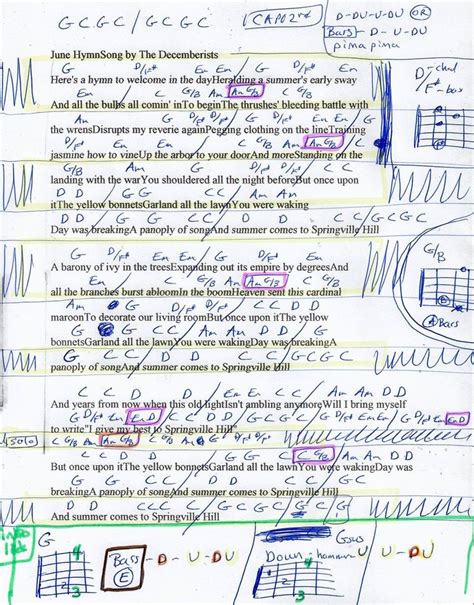 G C G C / G C G C
CAPO 2nd
D-DU-U-DU OR
Bars - D - U-DU
pima pima
June HymnSong by The Decemberists
G D/F# Em Em / G D/F#
Here's a hymn to welcome in the dayHeralding a summer's early sway
Em C G/B Am G/B
And all the bulbs all comin' inTo beginThe thrushes' bleeding battle with
Am G D/F# Em Em
the wrensDisrupts my reverie againPegging clothing on the lineTraining
C G/B Am G/B
jasmine how to vineUp the arbor to your doorAnd moreStanding on the
G/B Am G C C
landing with the warYou shouldered all the night beforeBut once upon
D D G G C C Am Am
itThe yellow bonnetsGarland all the lawnYou were waking
D D G C C D D C C / G C G C
Day was breakingA panoply of songAnd summer comes to Springville Hill
D-chord
F#-bass
G D/F# Em Em G D/F#
A barony of ivy in the treesExpanding out its empire by degreesAnd
Em C G/B Am G/B
all the branches burst abloomIn the boomHeaven sent this cardinal
Am G C C D D
maroonTo decorate our living roomBut once upon itThe yellow
G G C C Am Am D D G
bonnetsGarland all the lawnYou were wakingDay was breakingA
G C C D D C C / G C G C
panoply of songAnd summer comes to Springville Hill
G/B
A Bars
C C D D Em Em C C Am Am D D
And years from now when this old lightIsn't ambling anymoreWill I bring myself
G D/F# Em Em D
to write"I give my best to Springville Hill"
solo
C G/B Am Am G/B
C C D D G G C G/B Am Am D D
But once upon itThe yellow bonnetsGarland all the lawnYou were wakingDay was
G C C D D C C / G C G C
breakingA panoply of songAnd summer comes to Springville Hill
D D C C C / G C G C / G C G
And summer comes to Springville Hill
G
Bars
E
- D - U - DU
Gsus
Down, hammer-U U-DU